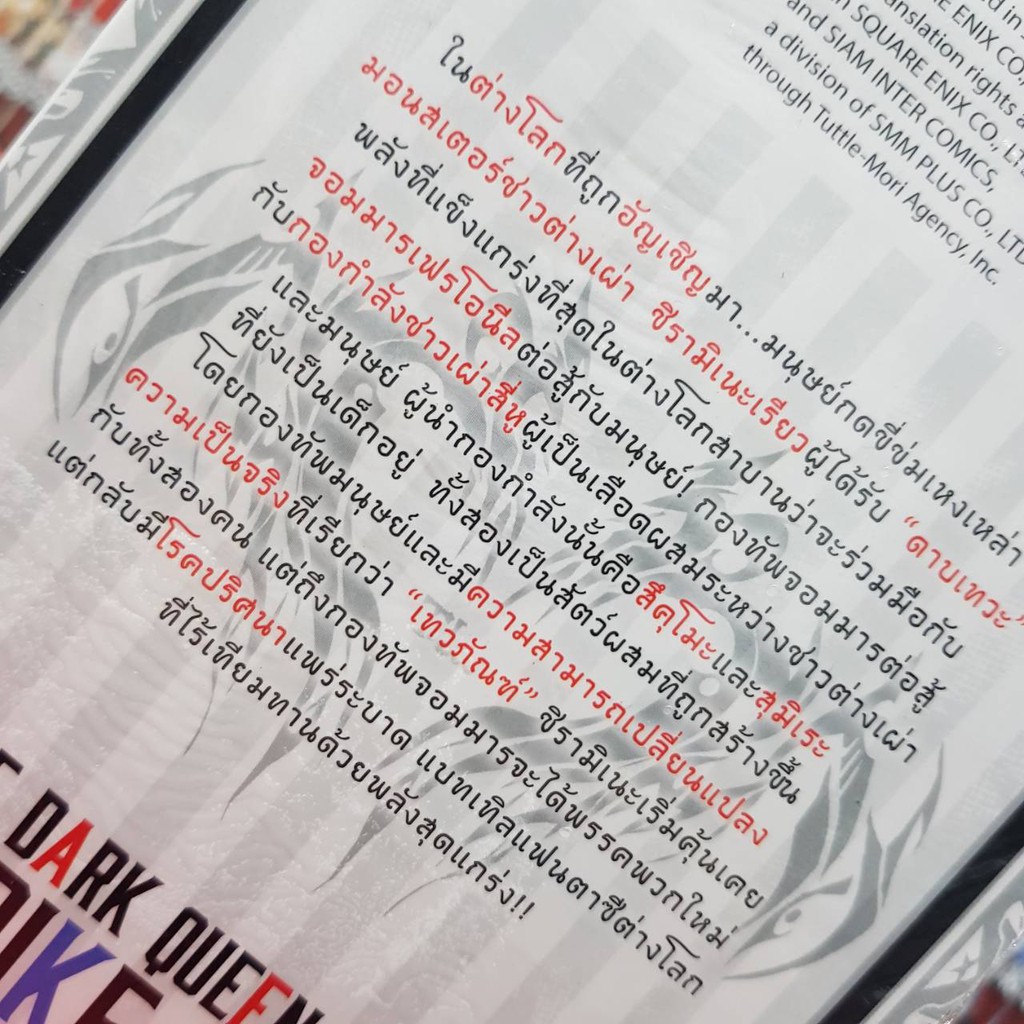 ed in
RE ENIX CO.,
anslation rights a
SQUARE ENIX CO., LT
and SIAM INTER COMICS,
a division of SMM PLUS CO., LTD
through Tuttle-Mori Agency, Inc.
ในต่างโลกที่ถูกอัญเชิญมา...มนุษย์กดขี่ข่มเหงเหล่า
มอนสเตอร์ชาวต่างเผ่า ชิรามิเนะเรียวผู้ได้รับ “ดาบเทวะ”
พลังที่แข็งแกร่งที่สุดในต่างโลกสาบานว่าจะร่วมมือกับ
จอมมารเฟรโอนีลต่อสู้กับมนุษย์! กองทัพจอมมารต่อสู้
กับกองกำลังชาวเผ่าสี่หูผู้เป็นเลือดผสมระหว่างชาวต่างเผ่า
และมนุษย์ ผู้นำกองกำลังนั้นคือสึคุโมะและสุมิเระ
ที่ยังเป็นเด็กอยู่ ทั้งสองเป็นสัตว์ผสมที่ถูกสร้างขึ้น
โดยกองทัพมนุษย์และมีความสามารถเปลี่ยนแปลง
ความเป็นจริงที่เรียกว่า “เทวภัณฑ์” ชิรามิเนะเริ่มคุ้นเคย
กับทั้งสองคน แต่ถึงกองทัพจอมมารจะได้พรรคพวกใหม่
แต่กลับมีโรคปริศนาแพร่ระบาด แบทเทิลแฟนตาซีต่างโลก
ที่ไร้เทียมทานด้วยพลังสุดแกร่ง!!
DARK QUEEN